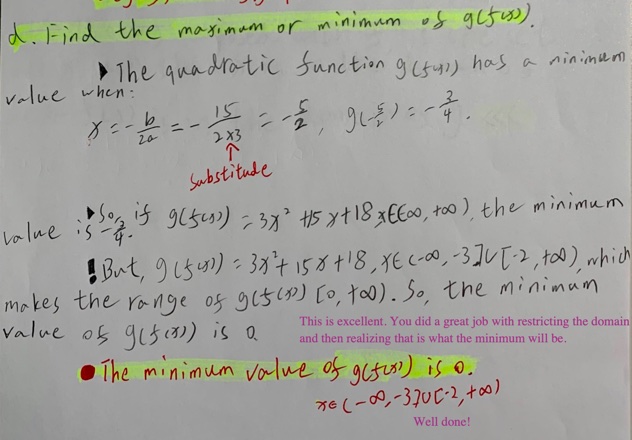 d. Find the maximum or minimum of g(f(x)).
▶ The quadratic function g(f(x)) has a minimum
value when:
x = -b/2a = -15/2×3 = -5/2, g(-5/2) = -3/4.
↑
Substitude
▶ So, if g(f(x)) = 3x² + 15x + 18, x∈(-∞, +∞), the minimum
value is -3/4.
! But, g(f(x)) = 3x² + 15x + 18, x∈(-∞, -3]∪[-2, +∞), which
makes the range of g(f(x)) [0, +∞). So, the minimum
value of g(f(x)) is 0.
This is excellent. You did a great job with restricting the domain
and then realizing that is what the minimum will be.
● The minimum value of g(f(x)) is 0.
x∈(-∞, -3]∪[-2, +∞)
Well done!